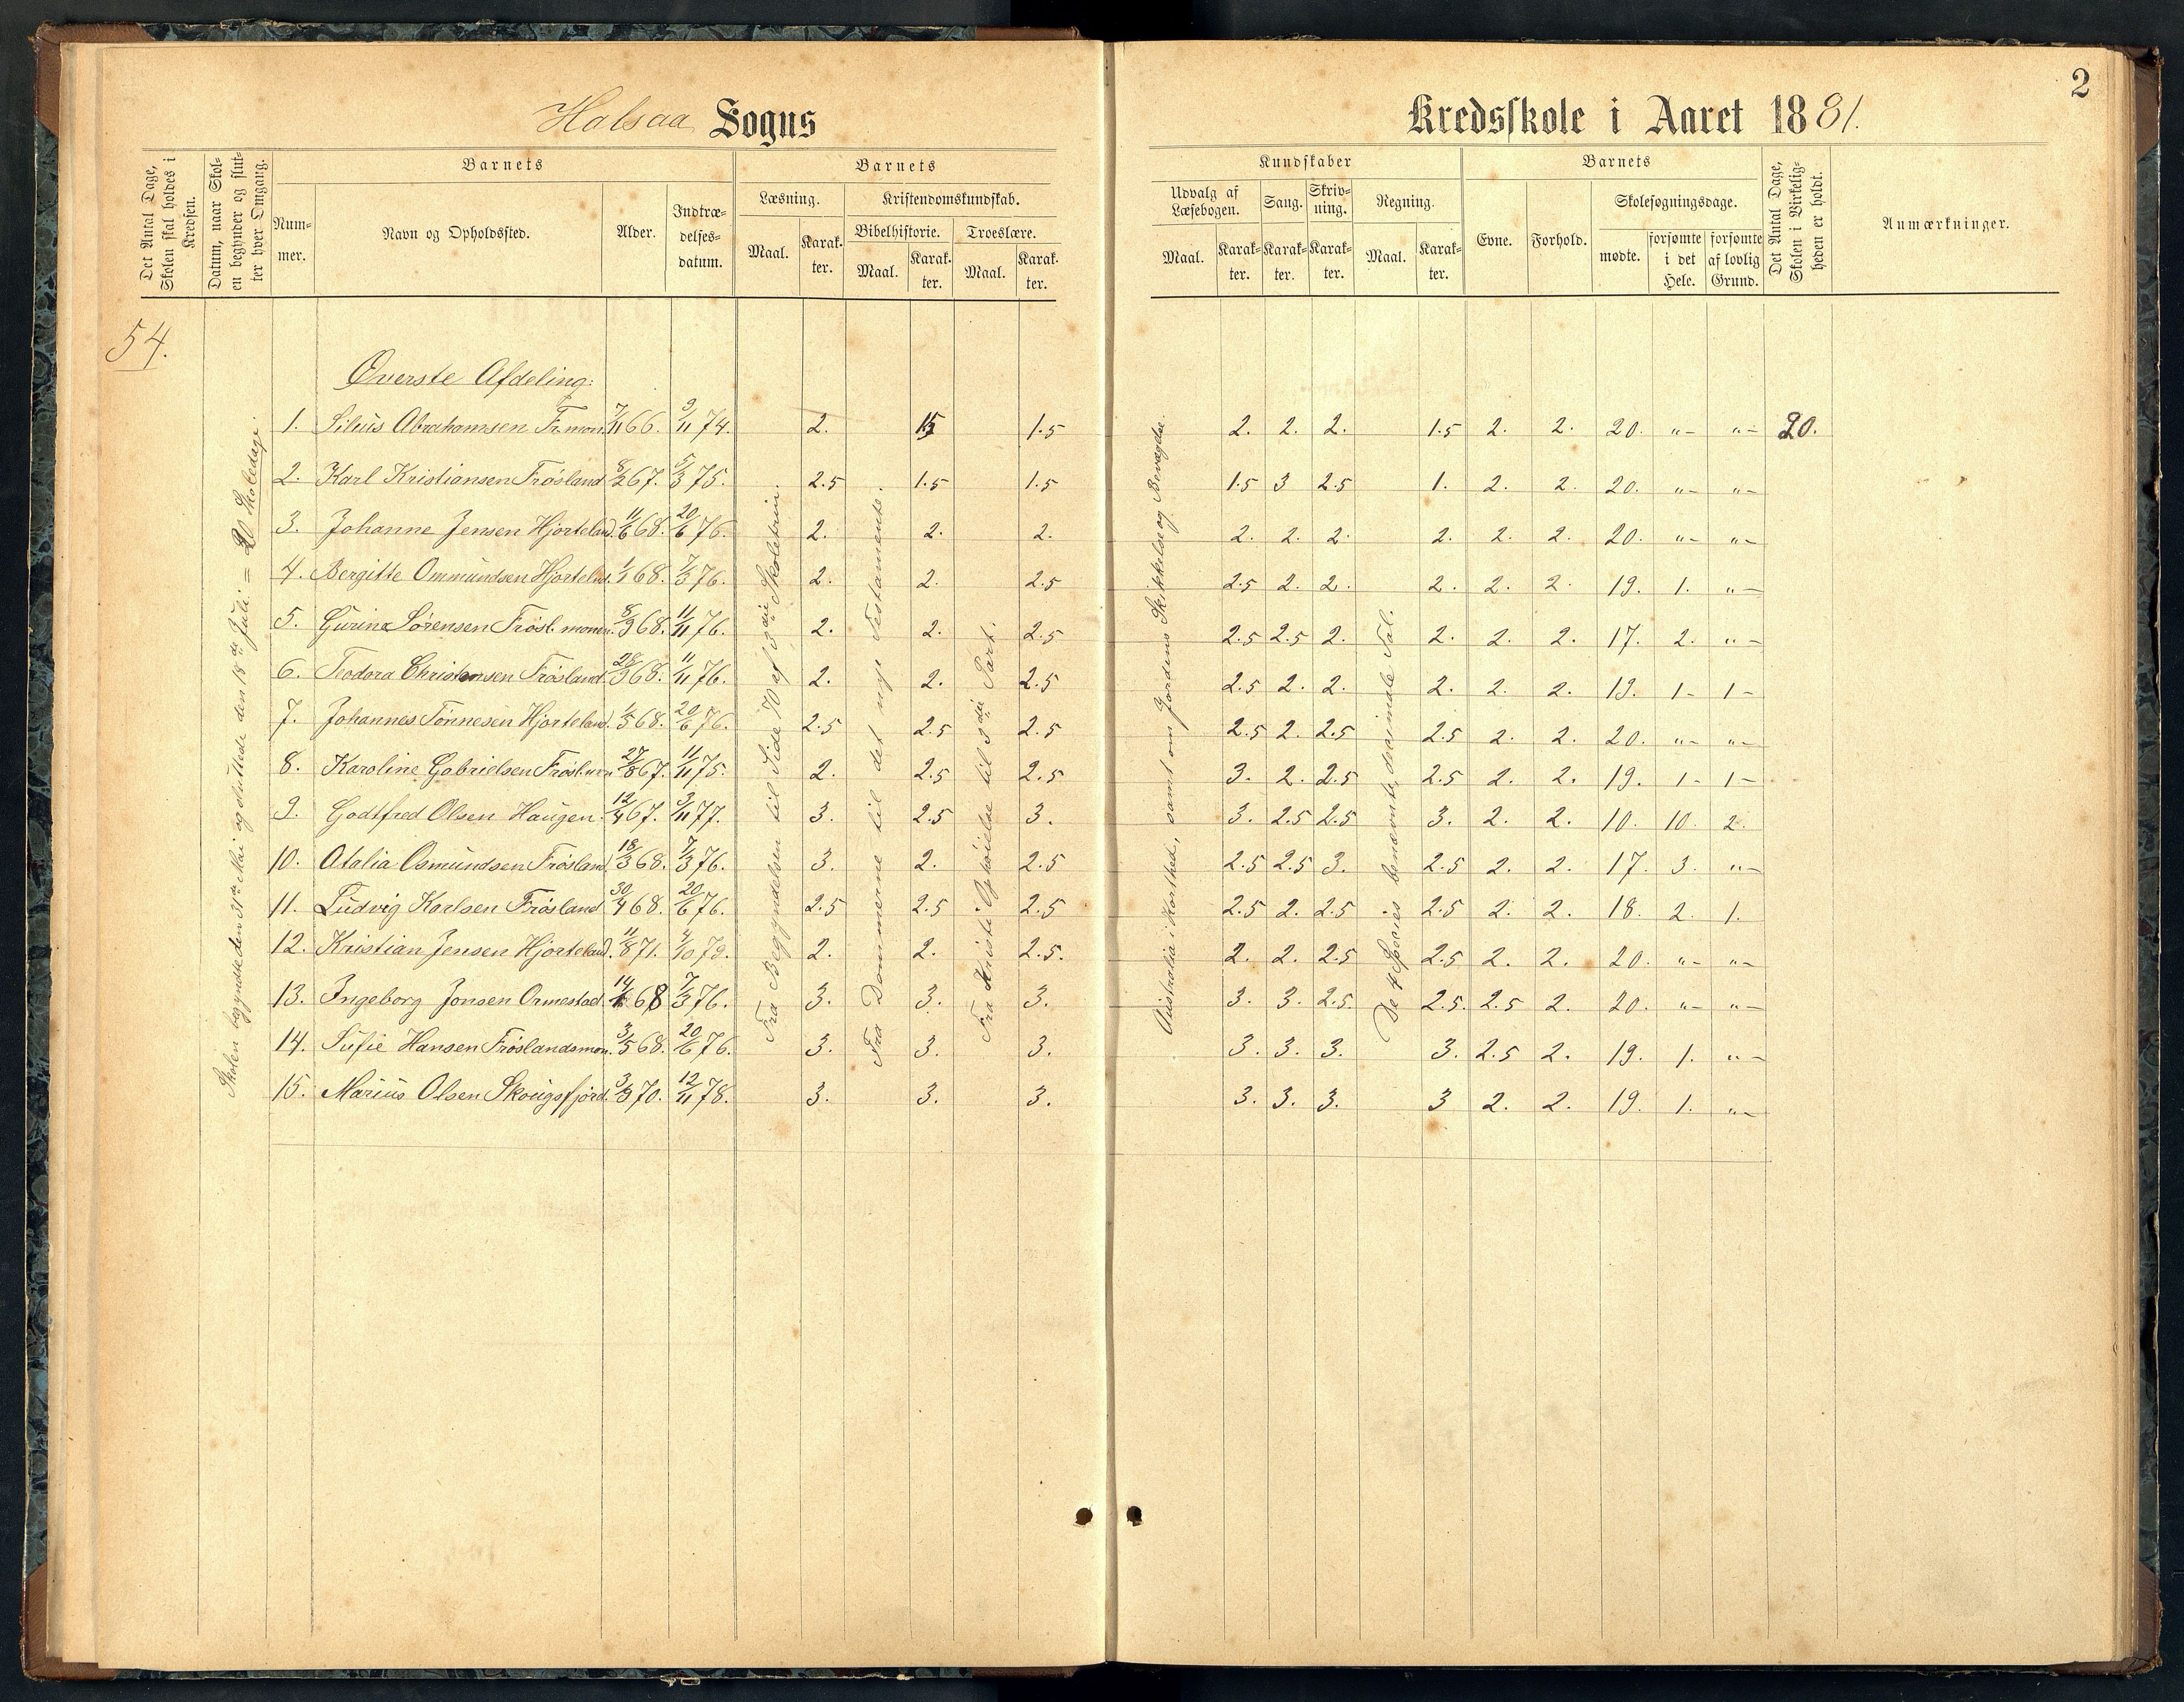 2
Halsaa Sogns Kredsskole i Aaret 1881.
Det Antal Dage, Skolen skal holdes i Kredsen.
Datum, naar Skolen begynder og slutter hver Omgang.
Barnets
Nummer.
Navn og Opholdssted.
Alder.
Indtrædelsesdatum.
Barnets
Læsning.
Maal.
Karakter.
Kristendomskundskab.
Bibelhistorie.
Maal.
Karakter.
Troeslære.
Maal.
Karakter.
Kundskaber
Udvalg af Læsebogen.
Maal.
Karakter.
Sang.
Karakter.
Skrivning.
Karakter.
Regning.
Maal.
Karakter.
Barnets
Evne.
Forhold.
Skolesøgningsdage.
mødte.
forsømte i det Hele.
forsømte af lovlig Grund.
Det Antal Dage, Skolen i Virkeligheden er holdt.
Anmærkninger.
54.
Skolen begyndte den 31te Mai og sluttede den 18de Juli = 20 Skoledage.
Øverste Afdeling:
Fra Begyndelsen til Side 70 af 3die Skoletrin.
Fra Dommerne til det nye Testamente.
Fra Kristi Ophøielse til 3die Part.
Australia i Korthed, samt om Jordens Skikkelse og Bevægelse.
De 4 Species benævnte, decimale Tal.
1. Silius Abrahamsen Fr.mon. 7/11 66. 9/11 74. 2. 1.5 1.5 2. 2. 2. 1.5 2. 2. 20. "- "- 20.
2. Karl Kristiansen Frösland 8/2 67. 5/3 75. 2.5 1.5 1.5 1.5 3 2.5 1. 2. 2. 20. "- "-
3. Johanne Jensen Hjorteland. 11/6 68. 20/6 76. 2. 2. 2. 2. 2. 2. 2. 2. 2. 20. "- "-
4. Bergitte Ommundsen Hjortelnd. 1/1 68. 7/3 76. 2. 2. 2.5 2.5 2. 2. 2. 2. 2. 19. 1. "-
5. Gurine Sørensen Frösl.monen. 8/9 68. 11/11 76. 2. 2. 2.5 2.5 2.5 2. 2. 2. 2. 17. 2. "-
6. Teodora Christensen Frösland. 28/9 68. 11/11 76. 2. 2. 2.5 2.5 2. 2. 2. 2. 2. 19. 1- 1-
7. Johannes Tønnesen Hjorteland. 1/5 68. 20/6 76. 2.5 2.5 2.5 2.5 2. 2.5 2.5 2. 2. 20. "- "-
8. Karoline Gabrielsen Frösl.mon 27/8 67. 11/11 75. 2. 2.5 2.5 3. 2. 2.5 2.5 2. 2. 19. 1- 1-
9. Godtfred Olsen Haugen. 12/4 67. 3/11 77. 3. 2.5 3. 3. 2.5 2.5 3. 2. 2. 10. 10. 2.
10. Otalia Osmundsen Frösland. 18/3 68. 7/3 76. 3. 2. 2.5 2.5 2.5 3. 2.5 2. 2. 17. 3. "-
11. Ludvig Karlsen Frösland 30/4 68. 20/6 76. 2.5 2.5 2.5 2.5 2. 2.5 2.5 2. 2. 18. 2. 1.
12. Kristian Jensen Hjorteland. 11/8 71. 4/10 79. 2. 2. 2.5. 2. 2. 2.5 2.5 2. 2. 20. "- "-
13. Ingeborg Jonsen Ormestad. 68 7/3 76. 3. 3. 3. 3. 3. 2.5. 2.5. 2.5 2. 20. "- "-
14. Sufie Hansen Fröslandsmon. 3/5 68. 20/6 76. 3. 3. 3. 3. 3. 3. 3. 2.5 2. 19. 1. "-
15. Marius Olsen Skougsfjord. 3/3 70. 12/11 78. 3. 3. 3. 3. 3. 3. 3 2. 2. 19. 1. "-